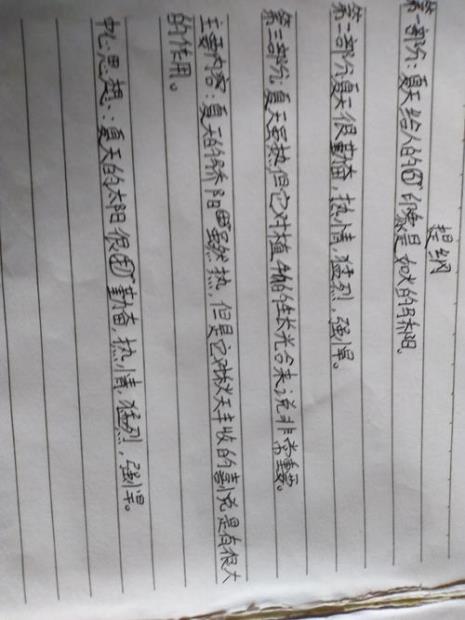 提纲
第一部份：夏天给人的印象是如火的骄阳。
第二部分夏天很勤奋，热情，猛烈，强悍。
第三部分：夏天虽热但它对植物的生长光合来说非常重要。
主要内容：夏天的骄阳虽然热，但是它对秋天丰收的来说是有很大
的作用。
中心思想：夏天的太阳很勤奋，热情，猛烈，强悍。